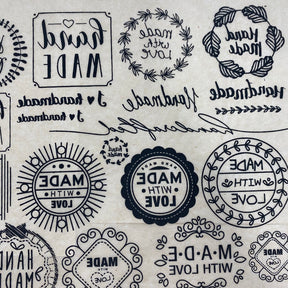 hand
MADE
made
with
LOVE
Hand
Made
I ♥ handmade
I ♥ handmade
Handmade
handmade
MADE
WITH
LOVE
MADE
WITH
LOVE
MADE
WITH
LOVE
HAND
MADE
MADE
WITH
M·A·D·E
WITH LOVE
MADE
WITH